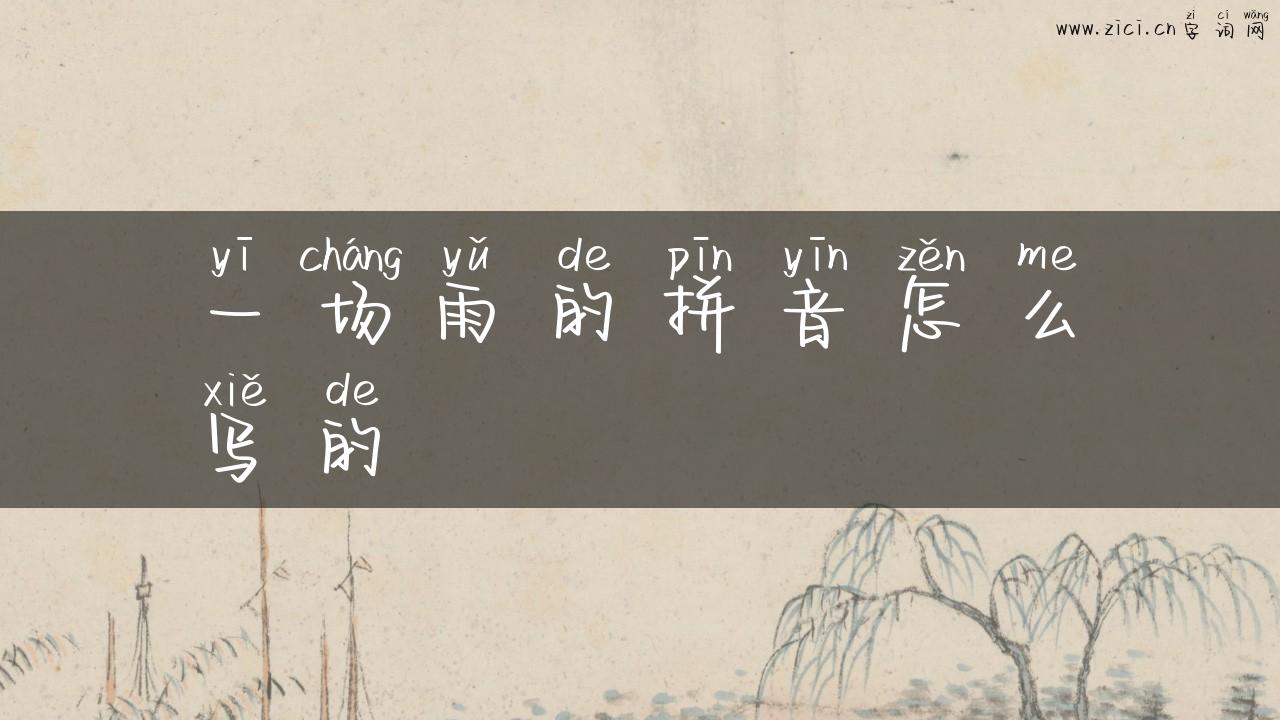 zì cí wǎng
www.zici.cn字词网
yī cháng yǔ de pīn yīn zěn me
一场雨的拼音怎么
xiě de
写的